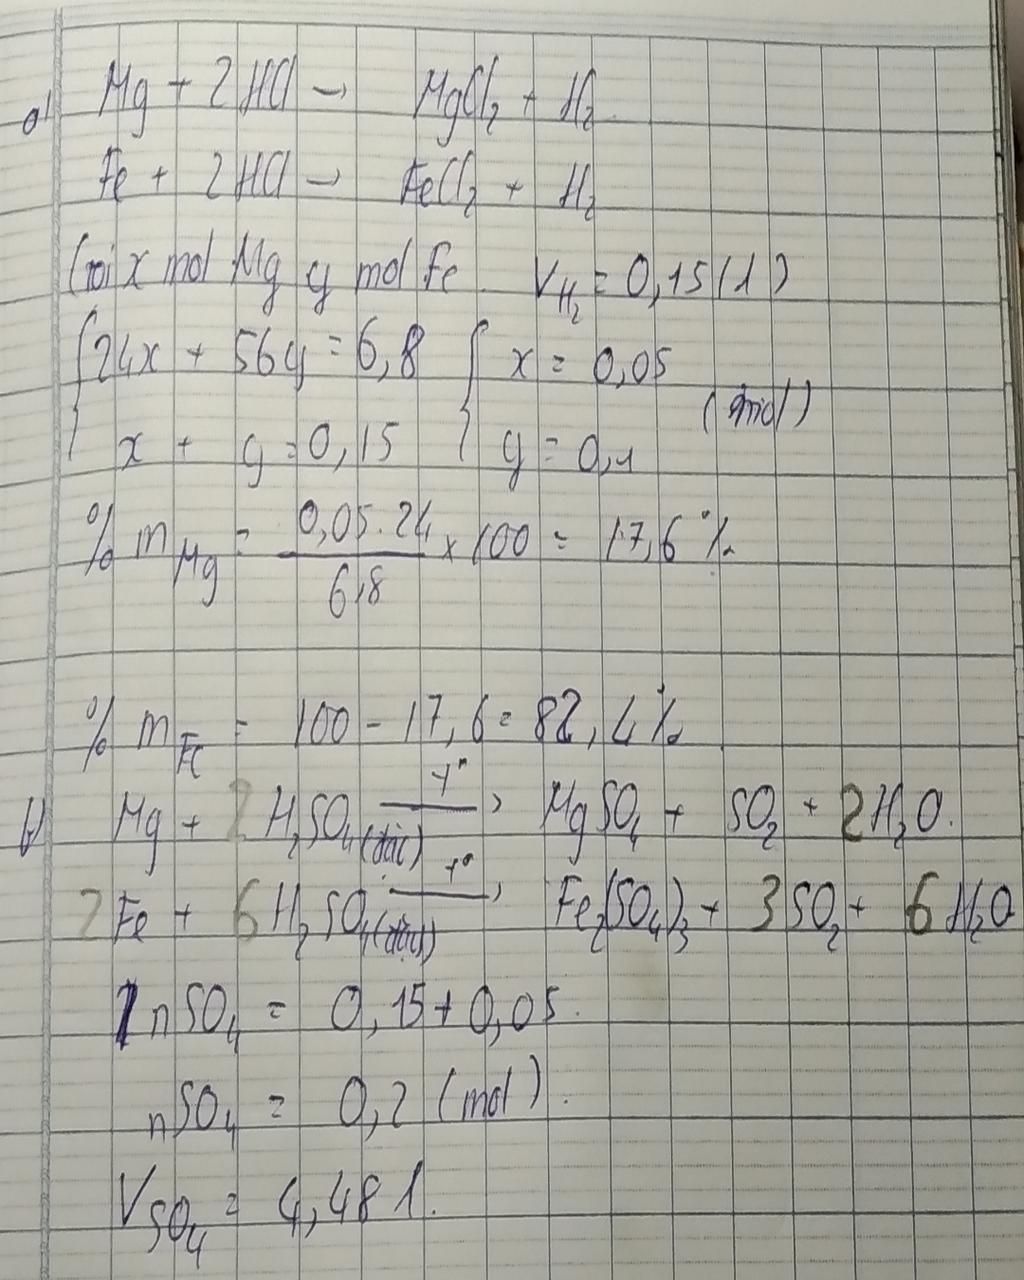 a) Mg + 2HCl → MgCl₂ + H₂
Fe + 2HCl → FeCl₂ + H₂
Gọi x mol Mg y mol Fe V_H₂ = 0,15 (l)
{24x + 56y = 6,8 {x = 0,05
x + y = 0,15 y = 0,1 (mol)
% m_Mg = 0,05.24 / 6,8 × 100 = 17,6 %
% m_Fe = 100 - 17,6 = 82,4%
b) Mg + 2H₂SO₄ (đặc) —t°→ MgSO₄ + SO₂ + 2H₂O.
2Fe + 6H₂SO₄ (đặc) —t°→ Fe₂(SO₄)₃ + 3SO₂ + 6H₂O
nSO₄ = 0,15 + 0,05.
nSO₄ = 0,2 (mol).
V_SO₄ = 4,48 l.